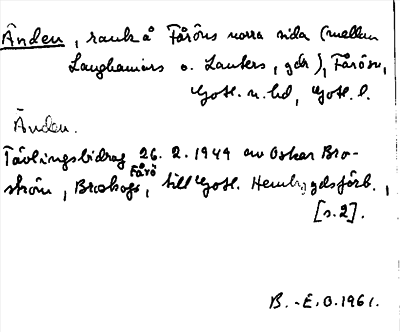 Änden, rauk å Fåröns norra sida (mellan
Langhamars o. Lauters, gdr), Fårösn,
Gotl. n. hd, Gotl. l.
Änden.
Tävlingsbidrag 26.2.1949 av Oskar Bro-
ström, Broskogs, Fårö, till Gotl. Hembygdsförb.,
[s.2].
B.-E.O.1961.